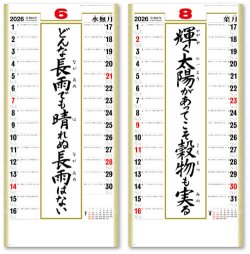 2026
6
水無月
1
2
3
4
5
6
7
8
9
10
11
12
13
14
15
16
どんな長雨でも晴れぬ長雨はない
17
18
19
20
21
22
23
24
25
26
27
28
29
30
2026
8
葉月
1
2
3
4
5
6
7
8
9
10
11
12
13
14
15
16
輝く太陽があってこそ穀物も実る
かがや
たいよう
こくもつ
みの
17
18
19
20
21
22
23
24
25
26
27
28
29
30
31